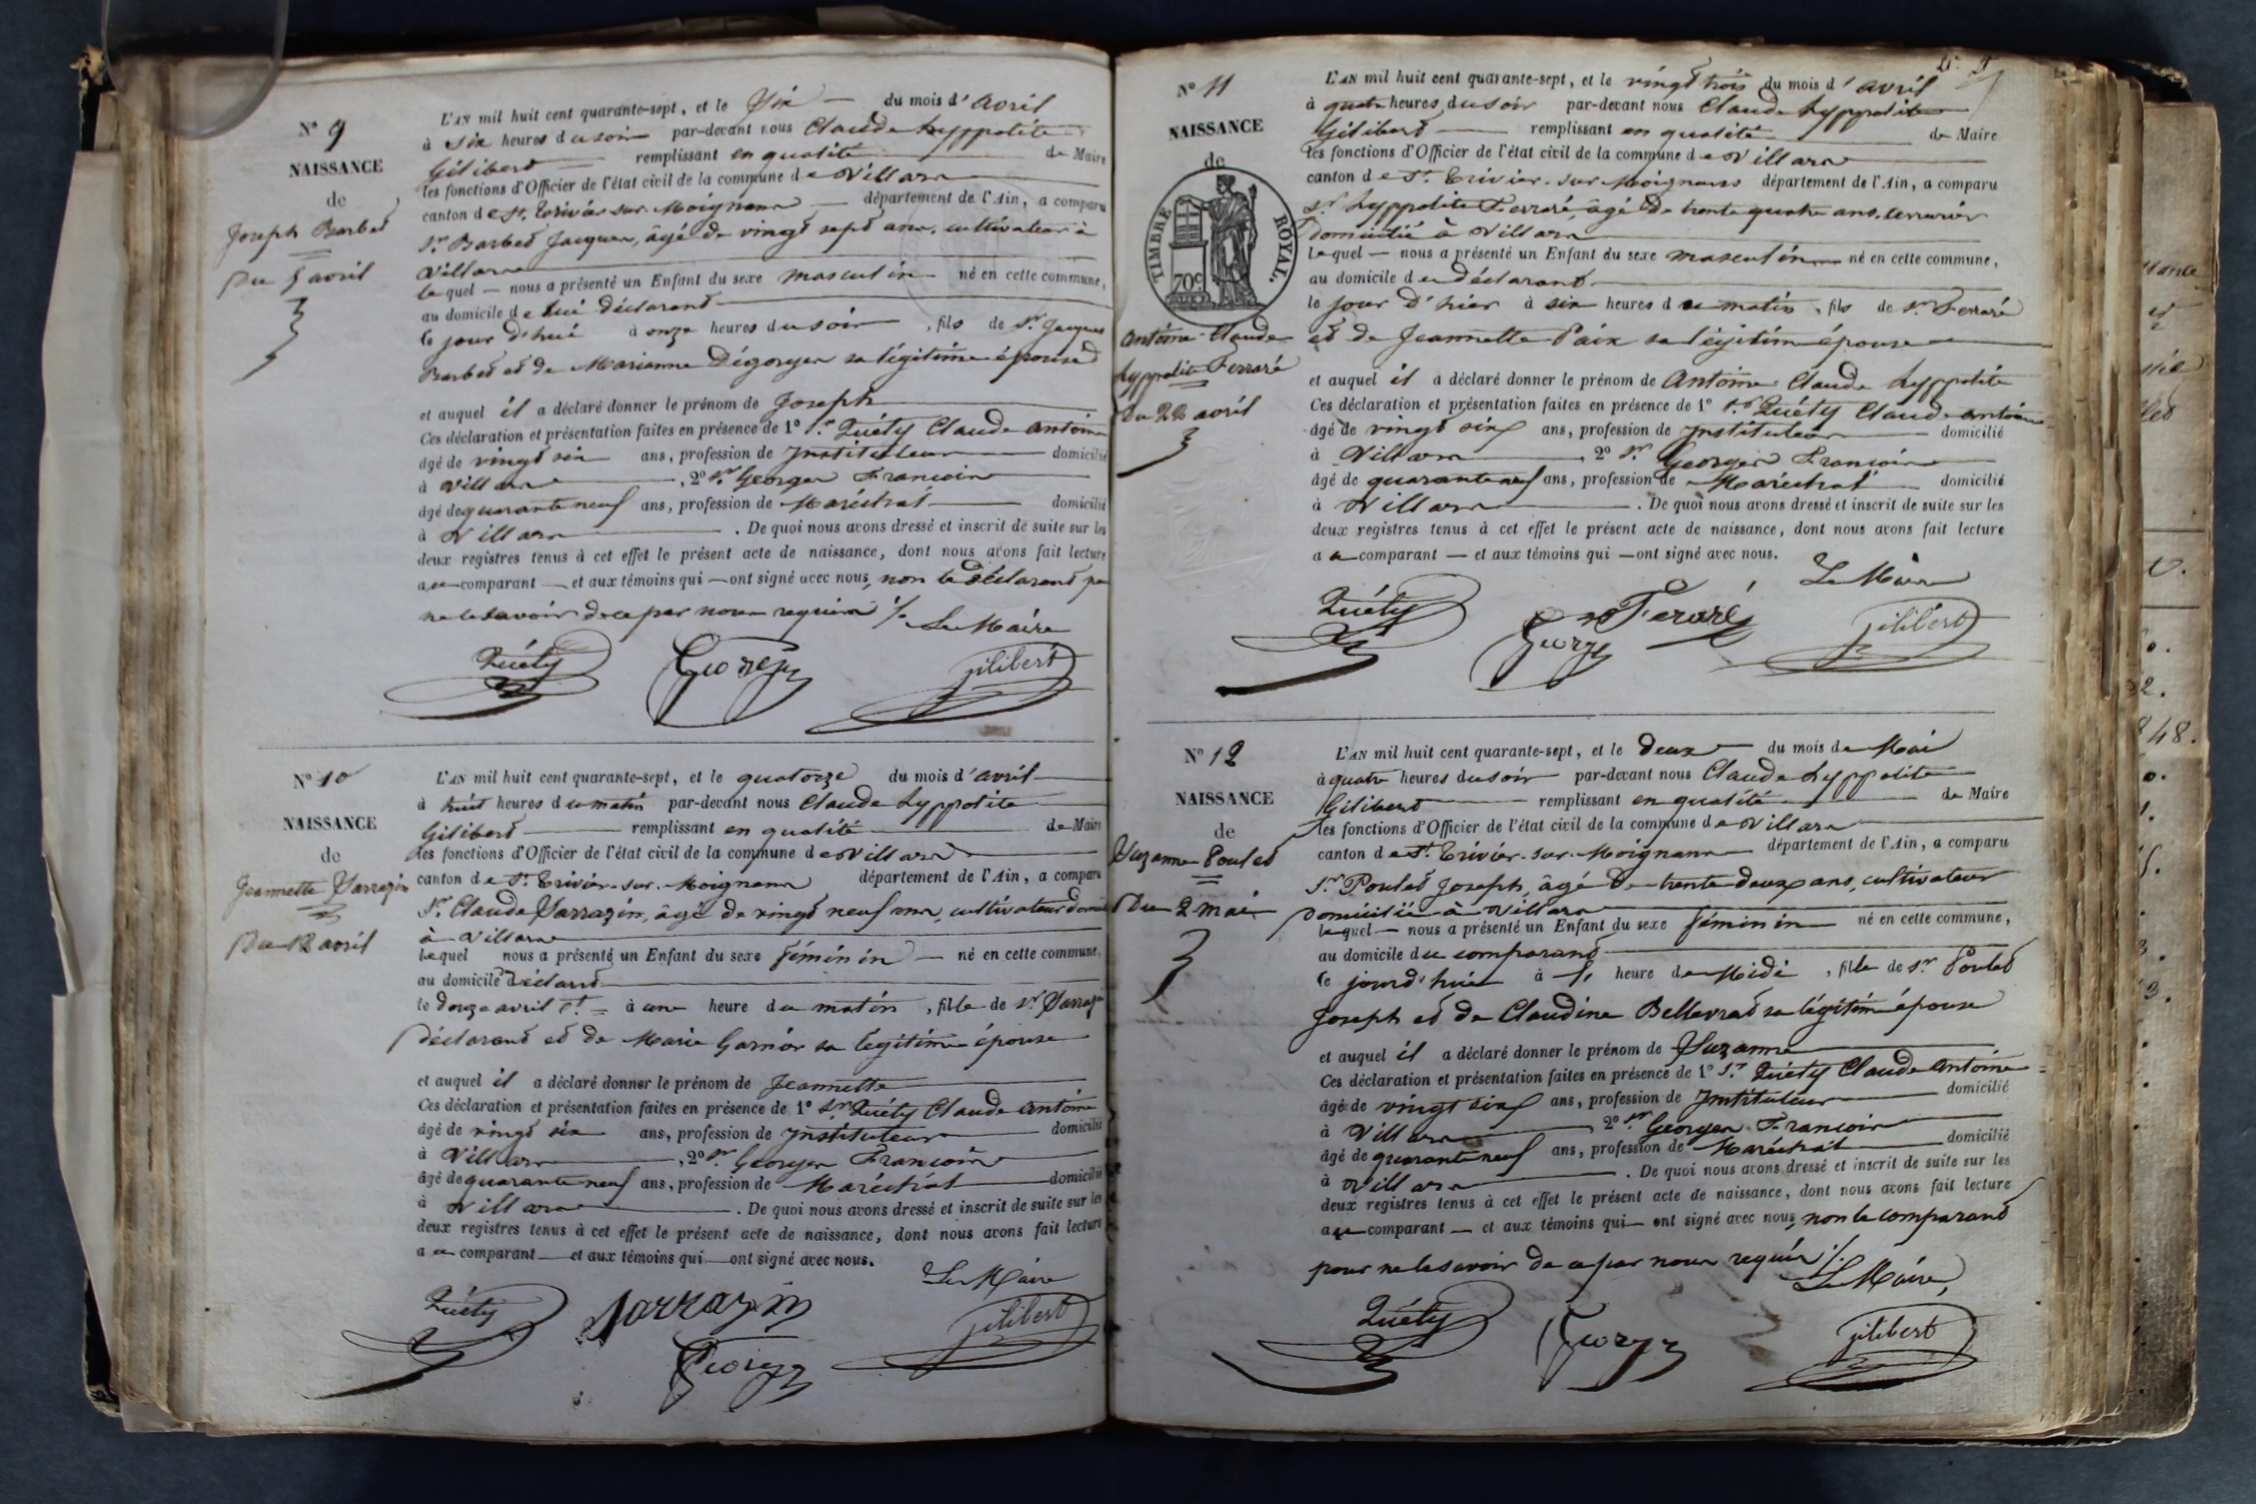 N° 9
NAISSANCE
de
Joseph Barbet
Du 5 avril
L'AN mil huit cent quarante-sept, et le Six du mois d'avril
à six heures du soir par-devant nous Claude hyppolite
Gilibert remplissant en qualité de Maire
les fonctions d'Officier de l'état civil de la commune de Villars
canton de St. Trivier sur Moignans département de l'Ain, a comparu
Sr. Barbet Jacques, âgé de vingt sept ans, cultivateur à
Villars
lequel nous a présenté un Enfant du sexe masculin né en cette commune,
au domicile de lui déclarant
ce jour d'hui à onze heures du soir, fils de Sr. Jacques
Barbet et de Marianne Dégorges sa légitime épouse
et auquel il a déclaré donner le prénom de Joseph
Ces déclaration et présentation faites en présence de 1° Sr. Quéty Claude Antoine
âgé de vingt six ans, profession de Instituteur domicilié
à Villars, 2° Sr. Georges François
âgé de quarante neuf ans, profession de Maréchal domicilié
à Villars. De quoi nous avons dressé et inscrit de suite sur les
deux registres tenus à cet effet le présent acte de naissance, dont nous avons fait lecture
au comparant et aux témoins qui ont signé avec nous, non le déclarant pr
ne le savoir de ce par nous requis ./. Le Maire
Quéty Georges Gilibert
N° 10
NAISSANCE
de
Jeannette Sarrazin
Du 12 avril
L'AN mil huit cent quarante-sept, et le quatorze du mois d'avril
à huit heures du matin par-devant nous Claude hyppolite
Gilibert remplissant en qualité de Maire
les fonctions d'Officier de l'état civil de la commune de Villars
canton de St. Trivier-sur-Moignans département de l'Ain, a comparu
Sr. Claude Sarrazin, âgé de vingt neuf ans, cultivateur domicil
à Villars
lequel nous a présenté un Enfant du sexe féminin né en cette commune,
au domicile déclarant
le douze avril ct. à une heure du matin, fille de Sr. Sarrazin
déclarant et de Marie Garnier sa légitime épouse
et auquel il a déclaré donner le prénom de Jeannette
Ces déclaration et présentation faites en présence de 1° Sr. Quéty Claude Antoine
âgé de vingt six ans, profession de Instituteur domicilié
à Villars, 2° Sr. Georges François
âgé de quarante neuf ans, profession de Maréchal domicilié
à Villars. De quoi nous avons dressé et inscrit de suite sur les
deux registres tenus à cet effet le présent acte de naissance, dont nous avons fait lecture
au comparant et aux témoins qui ont signé avec nous.
Le Maire
Quéty Sarrazin Gilibert
Georges
N° 11
NAISSANCE
de
TIMBRE ROYAL.
70c
Antoine Claude
hyppolite Ferraré
Du 22 avril
L'AN mil huit cent quarante-sept, et le vingt trois du mois d'avril
à quatre heures du soir par-devant nous Claude hyppolite
Gilibert remplissant en qualité de Maire
les fonctions d'Officier de l'état civil de la commune de Villars
canton de St. Trivier-sur-Moignans département de l'Ain, a comparu
Sr. hyppolite Ferraré, âgé de trente quatre ans, serrurier
domicilié à Villars
lequel nous a présenté un Enfant du sexe masculin né en cette commune,
au domicile du déclarant
le jour d'hier à six heures du matin, fils de Sr. Ferraré
et de Jeannette Paix sa légitime épouse
et auquel il a déclaré donner le prénom de Antoine Claude hyppolite
Ces déclaration et présentation faites en présence de 1° Sr. Quéty Claude Antoine
âgé de vingt six ans, profession de Instituteur domicilié
à Villars, 2° Sr. Georges François
âgé de quarante neuf ans, profession de Maréchal domicilié
à Villars. De quoi nous avons dressé et inscrit de suite sur les
deux registres tenus à cet effet le présent acte de naissance, dont nous avons fait lecture
au comparant et aux témoins qui ont signé avec nous.
Le Maire
Quéty Feraré Gilibert
Georges
N° 12
NAISSANCE
de
Suzanne Poulet
Du 2 mai
L'AN mil huit cent quarante-sept, et le deux du mois de Mai
à quatre heures du soir par-devant nous Claude hyppolite
Gilibert remplissant en qualité de Maire
les fonctions d'Officier de l'état civil de la commune de Villars
canton de St. Trivier-sur-Moignans département de l'Ain, a comparu
Sr. Poulet Joseph, âgé de trente deux ans, cultivateur
domicilié à Villars
lequel nous a présenté un Enfant du sexe féminin né en cette commune,
au domicile du comparant
ce jourd'hui à 1 heure de Midi, fille de Sr. Poulet
Joseph et de Claudine Bellevrat sa légitime épouse
et auquel il a déclaré donner le prénom de Suzanne
Ces déclaration et présentation faites en présence de 1° Sr. Quéty Claude Antoine
âgé de vingt six ans, profession de Instituteur domicilié
à Villars 2° Sr. Georges François
âgé de quarante neuf ans, profession de Maréchal domicilié
à Villars. De quoi nous avons dressé et inscrit de suite sur les
deux registres tenus à cet effet le présent acte de naissance, dont nous avons fait lecture
au comparant et aux témoins qui ont signé avec nous, non le comparant
pour ne le savoir de ce par nous requis ./.
Le Maire,
Quéty Georges Gilibert